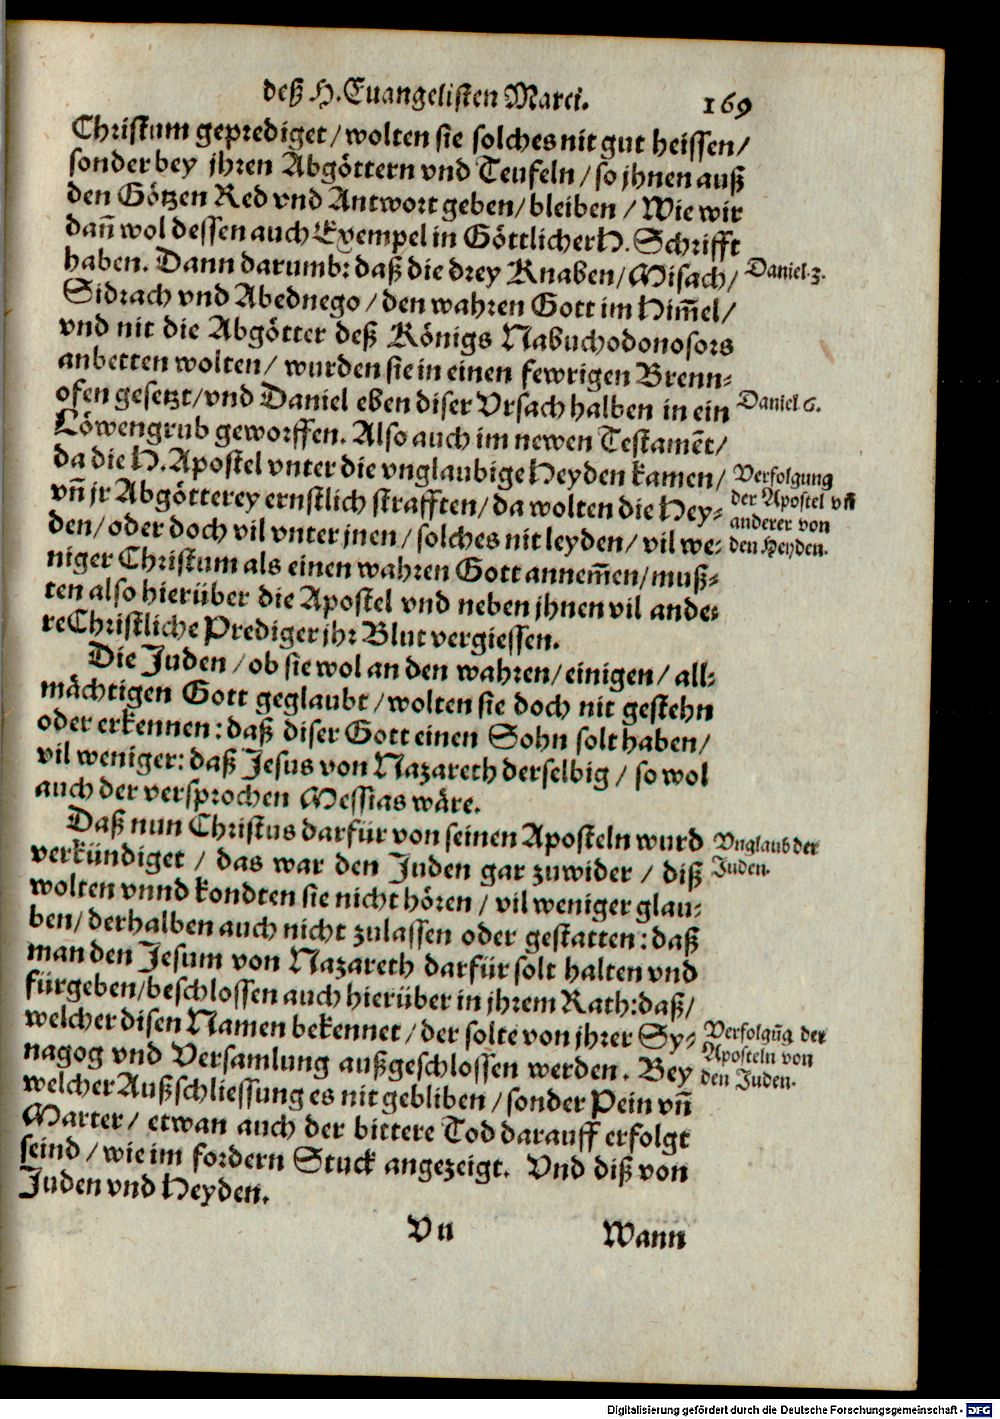 deß H. Euangelisten Marci. 169
Christum geprediget / wolten sie solches nit gut heissen /
sonder bey jhren Abgöttern vnd Teufeln / so jhnen auß
den Götzen Red vnd Antwort geben / bleiben / Wie wir
dañ wol dessen auch Exempel in Göttlicher H. Schrifft
haben. Dann darumb: daß die drey Knaben / Misach /
Daniel. 3.
Sidrach vnd Abednego / den wahren Gott im Him̃el /
vnd nit die Abgötter deß Königs Nabuchodonosors
anbetten wolten / wurden sie in einen fewrigen Brenn-
ofen gesetzt / vnd Daniel eben diser Vrsach halben in ein
Daniel 6.
Löwengrub geworffen. Also auch im newen Testamẽt /
da die H. Apostel vnter die vnglaubige Heyden kamen /
vñ jr Abgötterey ernstlich strafften / da wolten die Hey-
den / oder doch vil vnter jnen / solches nit leyden / vil we-
Verfolgung
der Apostel vñ
anderer von
den Heyden.
niger Christum als einen wahren Gott annem̃en / muß-
ten also hierüber die Apostel vnd neben jhnen vil ande-
re Christliche Prediger jhr Blut vergiessen.
Die Juden / ob sie wol an den wahren / einigen / all-
mächtigen Gott geglaubt / wolten sie doch nit gestehn
oder erkennen: daß diser Gott einen Sohn solt haben /
vil weniger: daß Jesus von Nazareth derselbig / so wol
auch der versprochen Messias wäre.
Daß nun Christus darfür von seinen Aposteln wurd
verkündiget / das war den Juden gar zuwider / diß
Vnglaub der
Juden.
wolten vnnd kondten sie nicht hören / vil weniger glau-
ben / derhalben auch nicht zulassen oder gestatten: daß
man den Jesum von Nazareth darfür solt halten vnd
fürgeben / beschlossen auch hierüber in jhrem Rath: daß /
welcher disen Namen bekennet / der solte von jhrer Sy-
nagog vnd Versamlung außgeschlossen werden. Bey
Verfolgũg der
Aposteln von
den Juden.
welcher Außschliessung es nit gebliben / sonder Pein vñ
Marter / etwan auch der bittere Tod darauff erfolgt
seind / wie im fordern Stuck angezeigt. Vnd diß von
Juden vnd Heyden.
Vu Wann
Digitalisierung gefördert durch die Deutsche Forschungsgemeinschaft - DFG